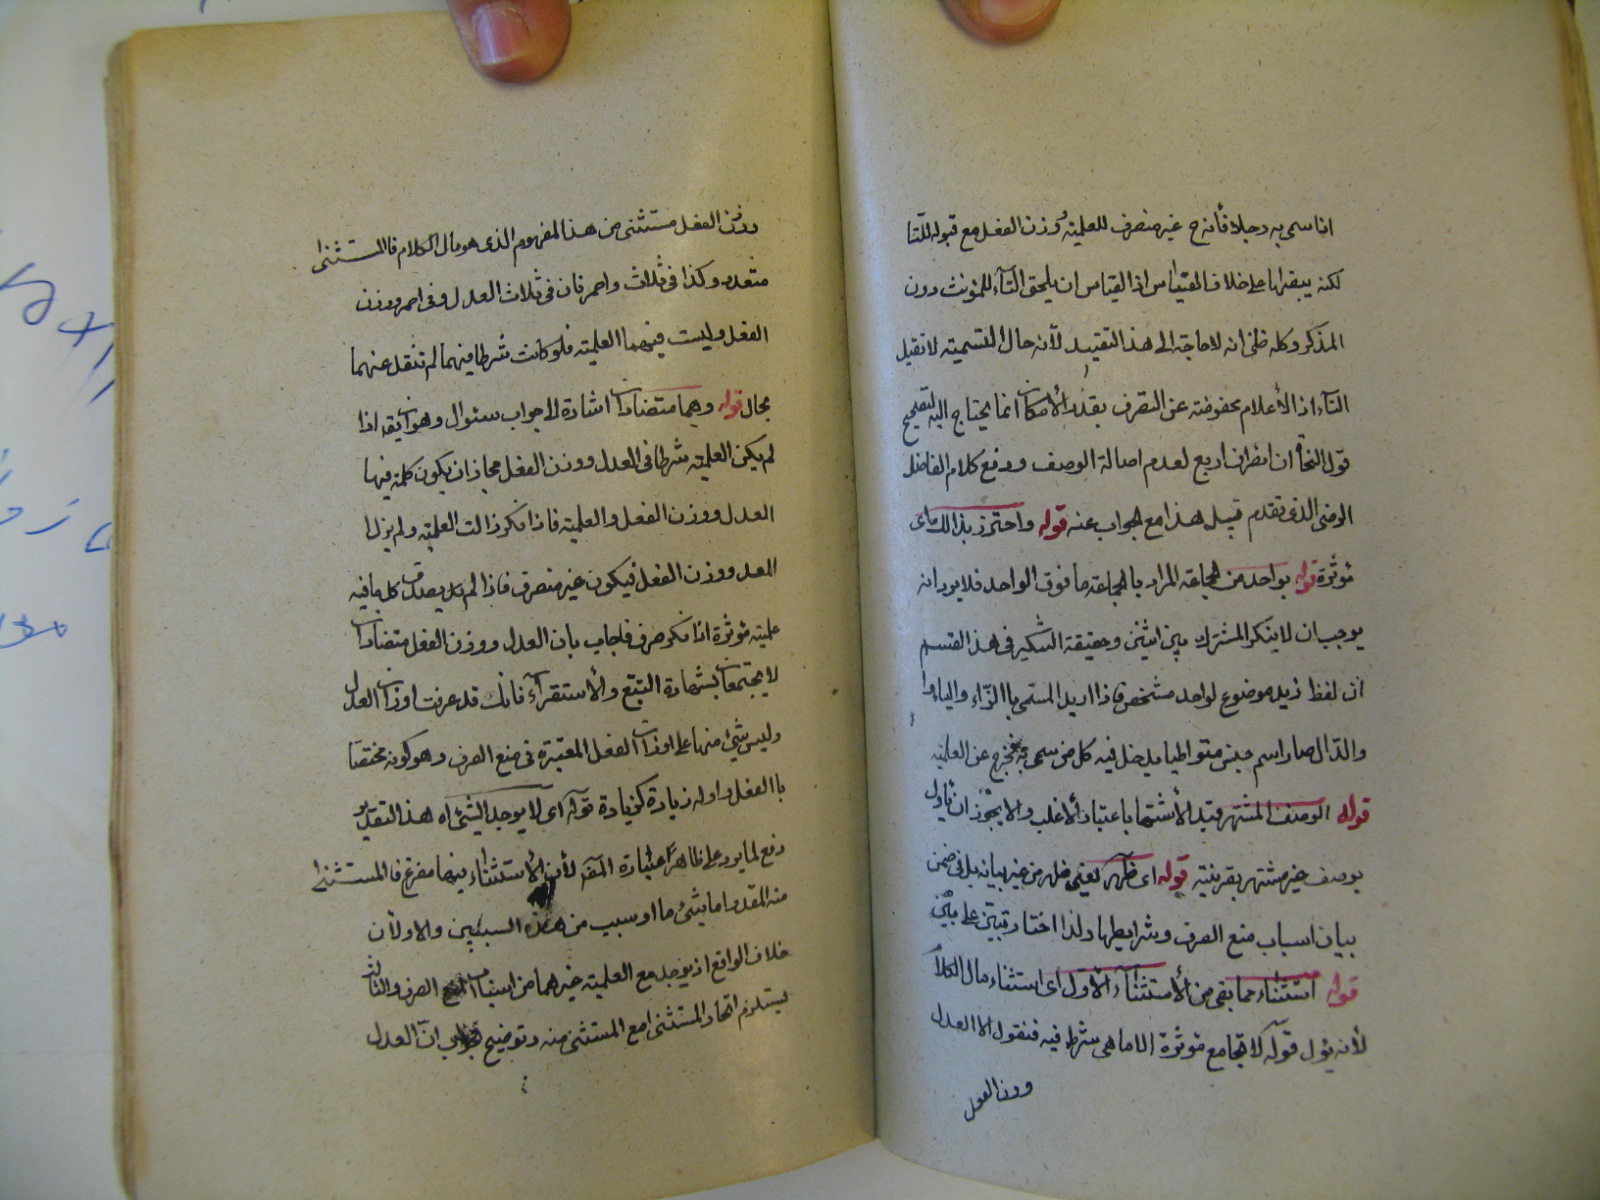 اذا سمى به رجلا فأنه ح غير منصرف للعلمية ووزن الفعل مع قبوله للتا
لكنه يبقتها على خلاف القياس اذ القياس ان يلحق التآء للمؤنث دون
المذكر وكله ظنى انه لا حاجة الى هذ التقييد لأنه حال التسمية لا تقبل
التآء اذ الأعلام محفوظة عن التصرف بقدر الأمكان انما يحتاج اليه لتصحيح
قول النحاة ان انصراف اربع لعدم اصالة الوصف ودفع كلام الفاضل
الرضى الذى تقدم قبيل هذا مع الجواب عنه قوله واحترز بذالك اى
مؤثرة قوله بواحد من الجماعة المراد با الجماعة ما فوق الواحد فلا يرد انه
يوجب ان لا ينكر المشترك بين اثنين وحقيقة التنكير فى هذ القسم
ان لفظ زيد موضوع لواحد مشخص فاذا اريد المسمى با الزاء والياء
والدال صار اسم جنس متواطيا يدخل فيه كل من سمى به فيخرج عن العلمية
قوله الوصف المشتهر قيد الأشتها باعتبار الأغلب والا يجوز ان يأول
بوصف غير مشتهر بقرينة قوله اى ظهر يعنى ظهر من غير بيانه بل فى ضمن
بيان اسباب منع الصرف وشرايطها ولذا اختار تبين على بين
قوله استثناء مما بقى من الأستثنآء الأول اى استثناء مال الكلام
لأنه يؤل قوله لا تجامع مؤثرة الا ما هى شرط فيه فنقول الا العدل
ووزن الفعل
ووزن الفعل مستثنى من هذ المفهوم الذى هو مال الكلام فا المستثنى
متعدد وكذا فى ثلاث واحمر فان فى ثلاث العدل وفى احمر ووزن
الفعل وليست فيهما العلمية فلو كانت شرطا فيهما لم تنقل عنهما
بحال قوله وهما متضادان اشارة الا جواب سئوال وهو ان يقه اذا
لم يكن العلمية شرطا فى العدل ووزن الفعل فجاز ان يكون كلمة فيها
العدل ووزن الفعل والعلمية فاذا نكر زالت العلمية ولم يزل
العدل ووزن الفعل فيكون غير منصرف فاذا لم يصدق كل ما فيه
علمية مؤثرة اذا نكر صرف فاجاب بان العدل ووزن الفعل متضادان
لا يجتمعان بشهادة التتبع والأستقرآء فانك قد عرفت اوزان العدل
وليس شئ منها على اوزان الفعل المعتبرة فى منع الصرف وهو كونه مختصا
با الفعل واوله زيادة كزيادة قوله اى لا يوجد الشئ اه هذ التقدير
دفع لما يرد على ظاهر عبارة المقه لأن الأستثناء فيهما مفرغ فا المستثنى
منه المقدر اما شئ ما او سبب من هذه السببين والاولان
خلاف الواقع اذ يوجد مع العلمية غيرهما من اسباب منع الصرف والثالث
يستلزم اتحاد المستثنى مع المستثنى منه وتوضيح ان العدل